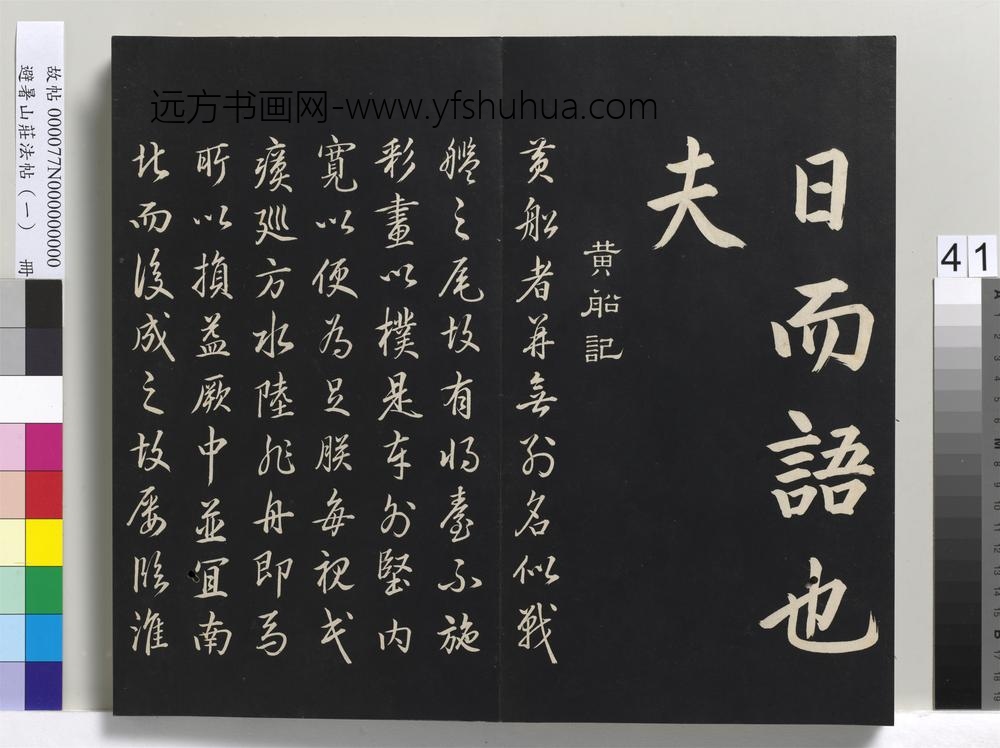 远方书画网-www.yfshuhua.com
日而語也
夫
黄船記
黄船者并無別名似戰
艦之尾故有將臺不施
彩畫以樸是本外堅内
寬以便為足朕每視民
瘼巡方水陸非舟即馬
所以損益厥中並宜南
北而後成之故屢臨淮
故帖 000077N000000000
避暑山莊法帖（一） 冊
41